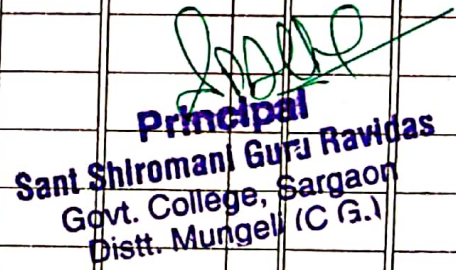 Principal
Sant Shiromani Guru Ravidas
Govt. College, Sargaon
Distt. Mungeli (C.G.)